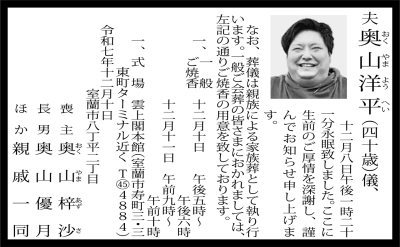 夫 奥山洋平(四十歳)儀、
おく やま よう へい
十二月八日午後一時二十
二分永眠致しました。ここに
生前のご厚情を深謝し、謹
んでお知らせ申し上げま
す。
なお、葬儀は親族による家族葬として執り行
います。一般ご会葬の皆さまにおかれましては、
左記の通りご焼香の用意を致しております。
一、一般ご焼香 十二月十日 午後五時〜午後六時
十二月十一日 午前九時〜午前十時
一、式場 雲上閣本館(室蘭市寿町三・三
東町ターミナル近く T㊺4884)
令和七年十二月十日
室蘭市八丁平二丁目
喪主 奥山梓沙
おく やま あず さ
長男 奥山優月
ほか 親戚一同